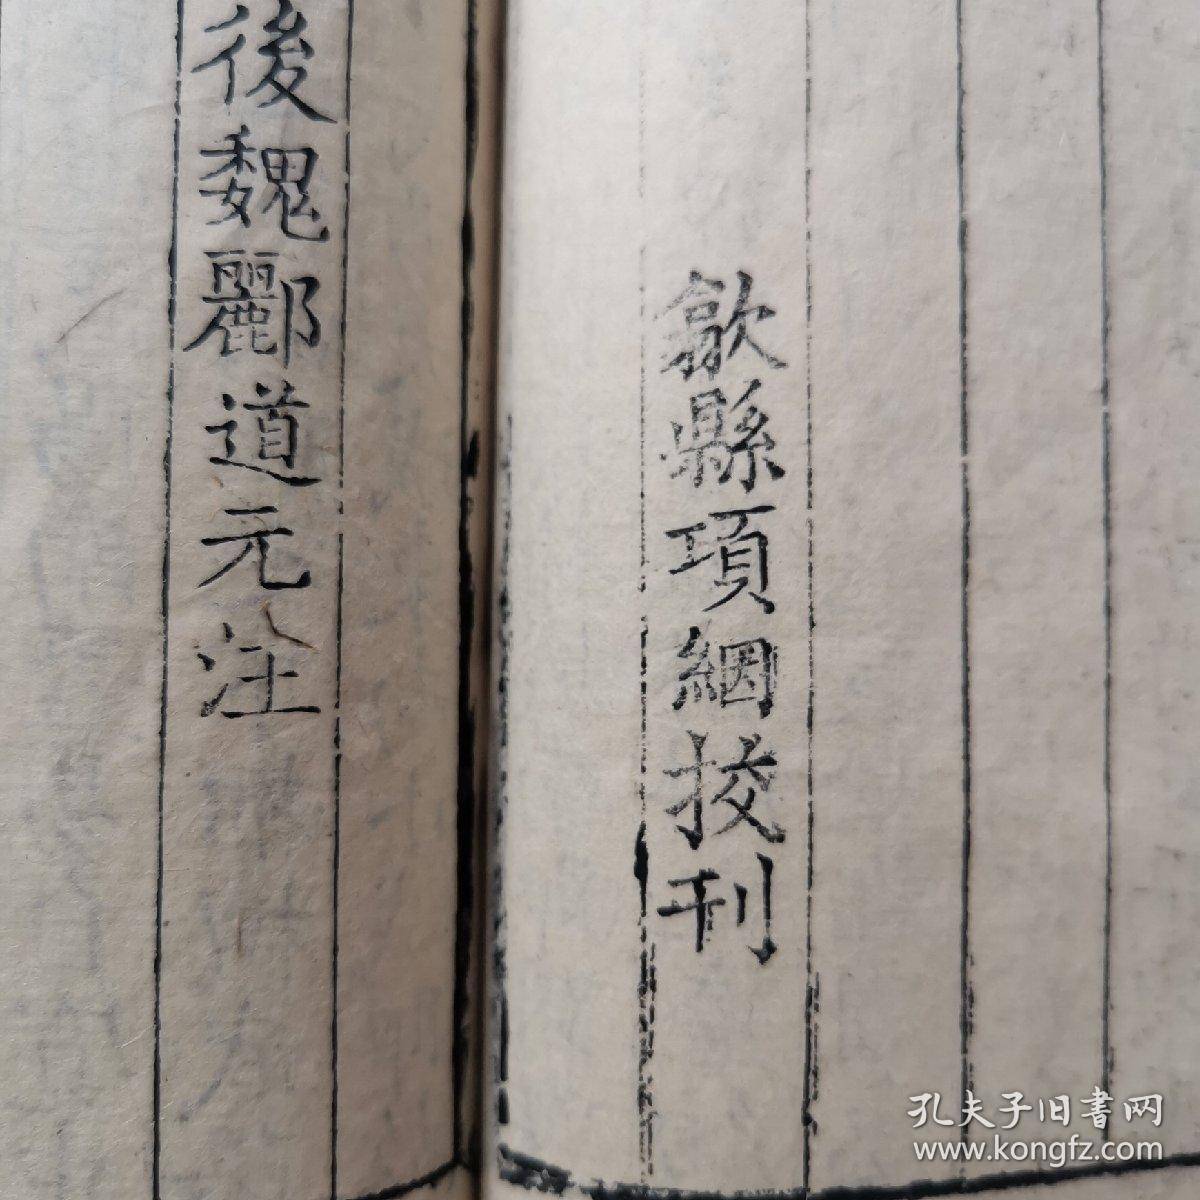 歙縣項絪挍刊
後魏酈道元注
孔夫子旧書网
www.kongfz.com